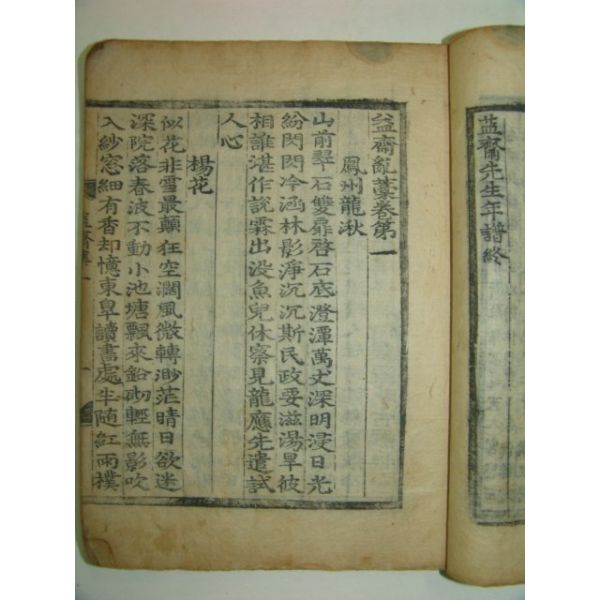 益齋先生年譜終
益齋亂藁卷第一
鳳州龍湫
山前翠石雙扉啓石底澄潭萬丈深明浸日光
紛閃閃冷涵林影淨沉沉斯民政要滋湯旱彼
相誰堪作說霖出没魚兒休察見龍應先遣試
人心
楊花
似花非雪最顚狂空濶風微轉渺茫晴日欲迷
深院落春波不動小池塘飄來鉛砌輕無影吹
入紗窓細有香却憶東皐讀書處半随紅雨撲